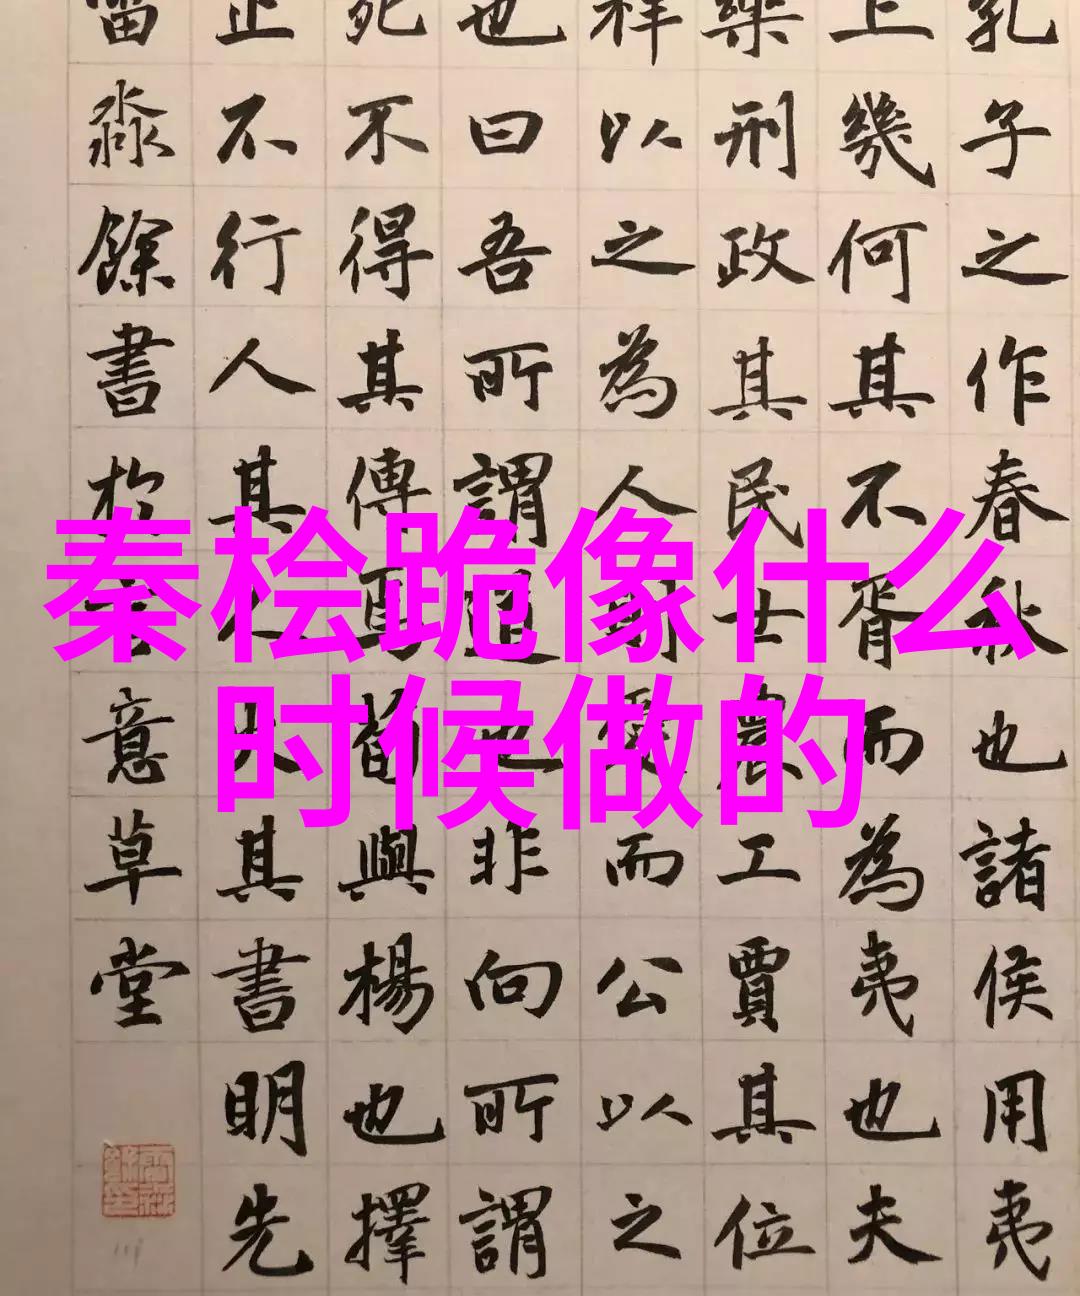 秦桧跪像什么
时候做的
孔子之作春秋也諸侯用夷
上幾何其不胥而為夷也夫
樂刑政其民士農工賈其位
祥以之為人則愛而公以之
也曰吾所謂道也非向所謂
死不得其傳焉荀與楊也擇
正不行人其人火其書明先
淼餘書於 意草堂